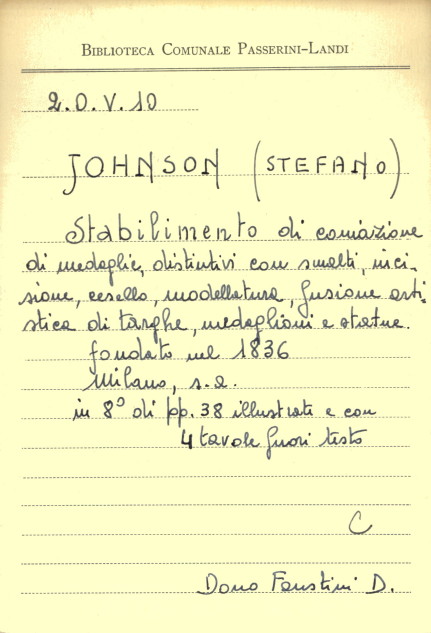 BIBLIOTECA COMUNALE PASSERINI-LANDI
2.O.V.10
JOHNSON (STEFANO)
Stabilimento di coniazione
di medaglie, distintivi con smalti, inci-
sione, cesello, modellatura, fusione arti-
stica di targhe, medaglioni e statue.
fondato nel 1836
Milano, s.a.
in 8° di pp. 38 illustrate e con
4 tavole fuori testo
C
Dono Faustini D.